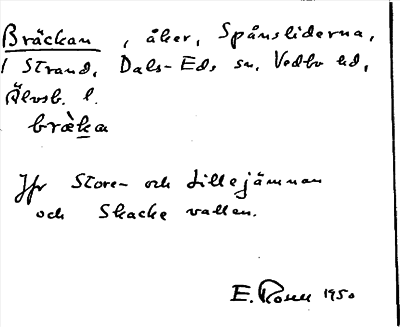 Bräckan, åker, Spånsliderna,
1 Strand, Dals-Eds sn, Vedbo hd,
Älvsb. l.
bræ̀ka
Jfr Store- och Lillejämnan
och Skacke vallen.
E. Rosell 1950